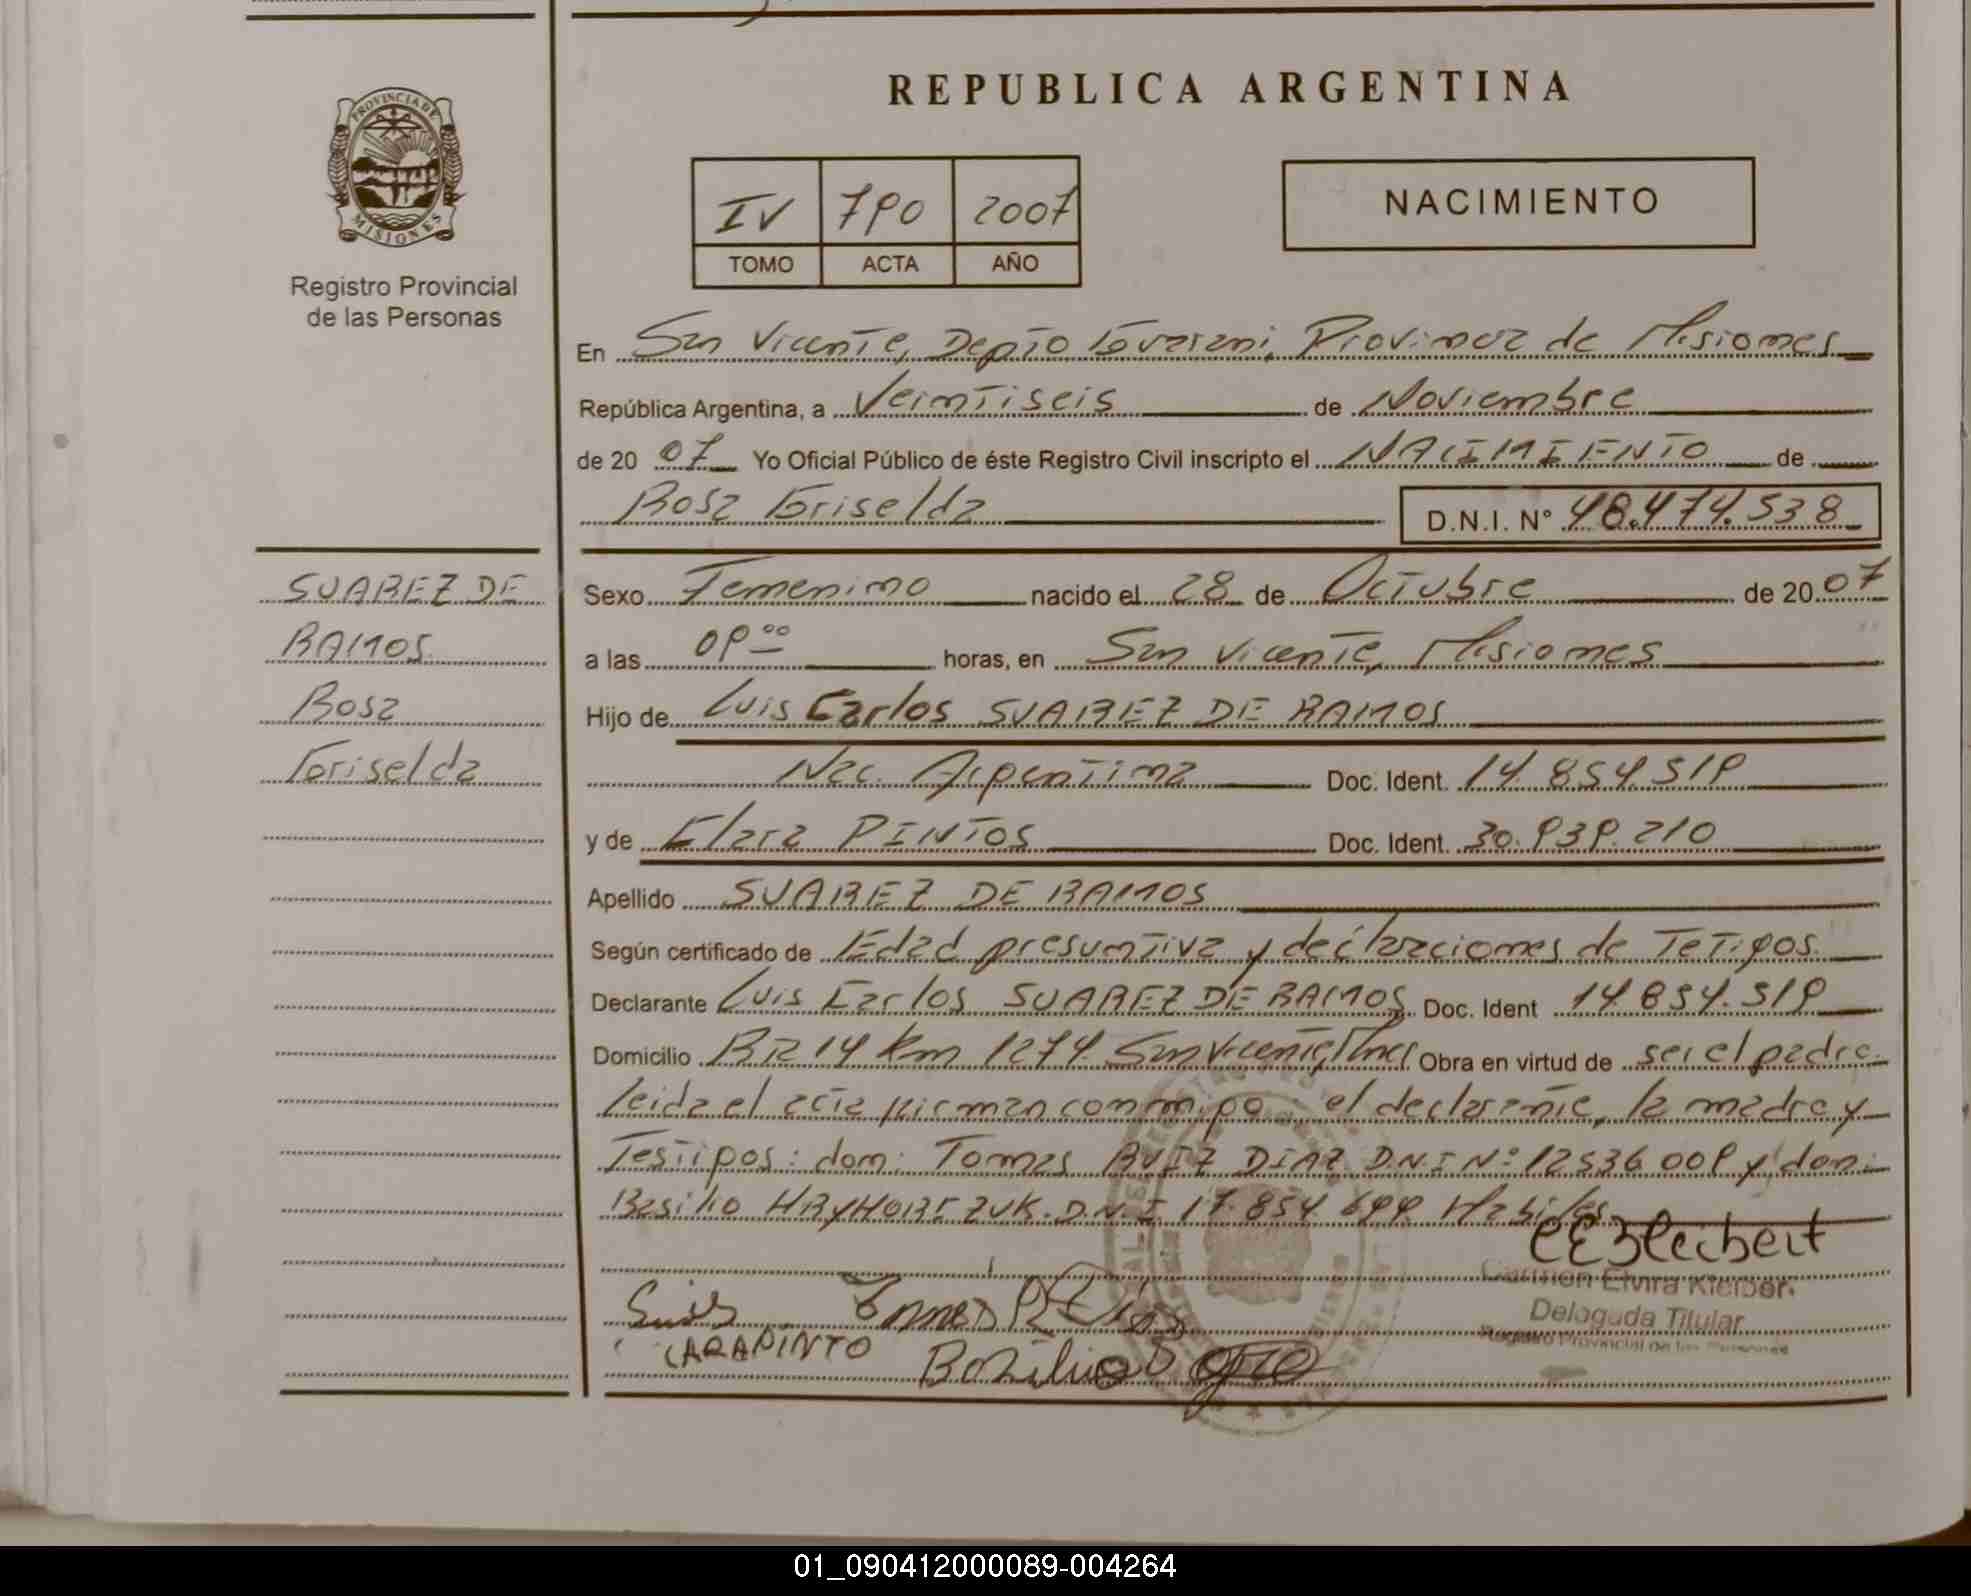 REPUBLICA ARGENTINA
PROVINCIA DE
MISIONES
Registro Provincial
de las Personas
IV 790 2007
TOMO ACTA AÑO
NACIMIENTO
En San Vicente, Depto Guarani, Provincia de Misiones
República Argentina, a Veintiseis de Noviembre
de 20 07 Yo Oficial Público de éste Registro Civil inscripto el NACIMIENTO de
Rosa Griselda D.N.I. Nº 48.474.538
SUAREZ DE
RAMOS
Rosa
Griselda
Sexo Femenino nacido el 28 de Octubre de 20 07
a las 09 00 horas, en San Vicente, Misiones
Hijo de Luis Carlos SUAREZ DE RAMOS
Nac. Argentina Doc. Ident. 14.854.519
y de Clara PINTOS Doc. Ident. 30.939.210
Apellido SUAREZ DE RAMOS
Según certificado de Edad presuntiva y declaraciones de Tetigos
Declarante Luis Carlos SUAREZ DE RAMOS Doc. Ident 14.854.519
Domicilio RR 14 Km 1274 San Vicente, Mnes Obra en virtud de ser el padre
leida el acta firman conmigo el declarante, la madre y
Testigos: don: Tomas RUIZ DIAZ D.N.I Nº 12536009 y don:
Basilio HRYHORCZUK. D.N.I 17.854.699 Habiles
Luis
CARAPINTO
Carmen Elvira Kleiber
Delegada Titular
Registro Provincial de las Personas
01_090412000089-004264